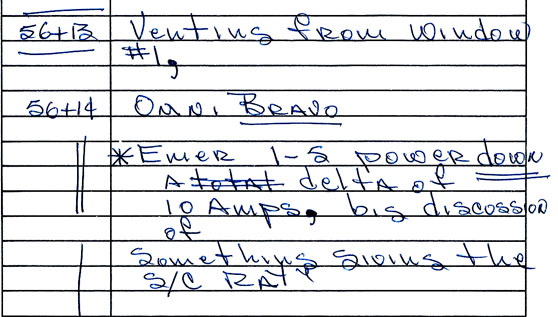 56+13 Venting from window
#1,
56+14 Omni Bravo
*Emer 1-5 power down
A total delta of
10 Amps, big discossion
of
Something giving the
S/C RATE